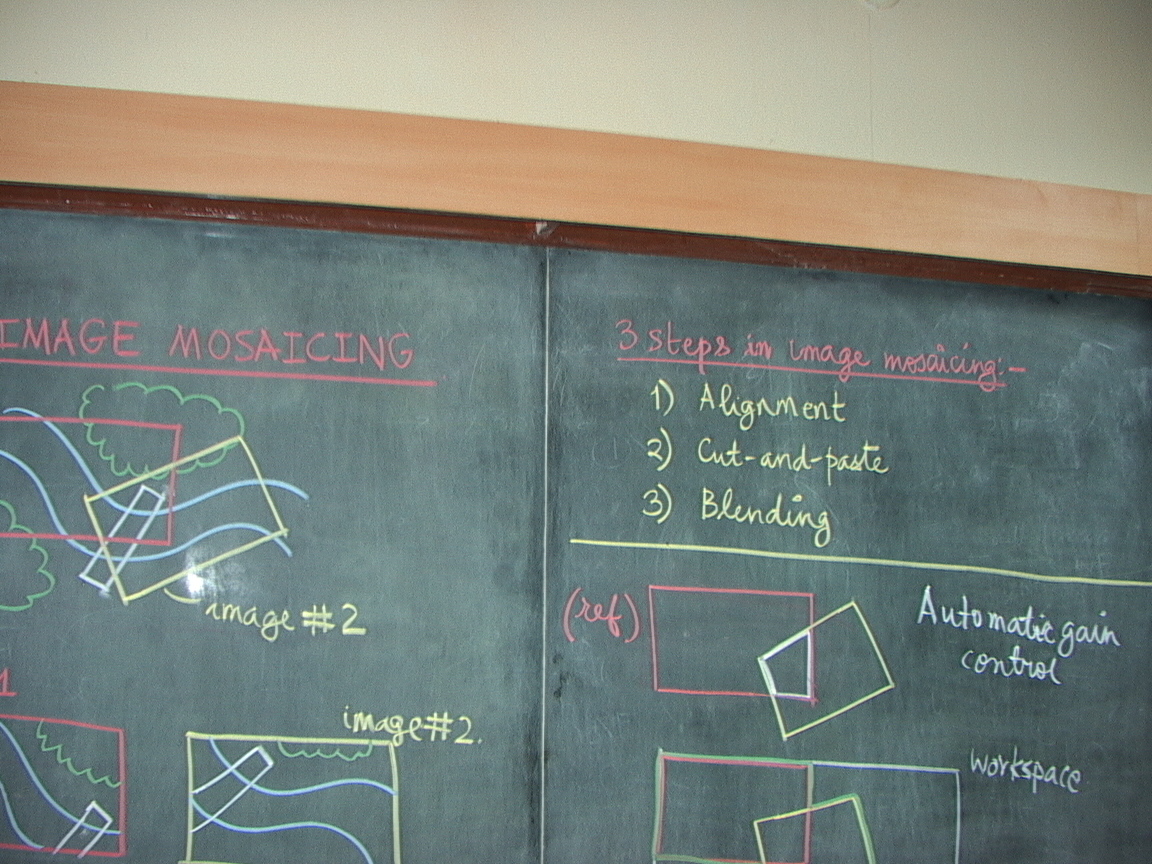 IMAGE MOSAICING
image #2
1
image #2.
3 steps in image mosaicing:-
1) Alignment
2) Cut-and-paste
3) Blending
(ref)
Automatic gain
control
workspace